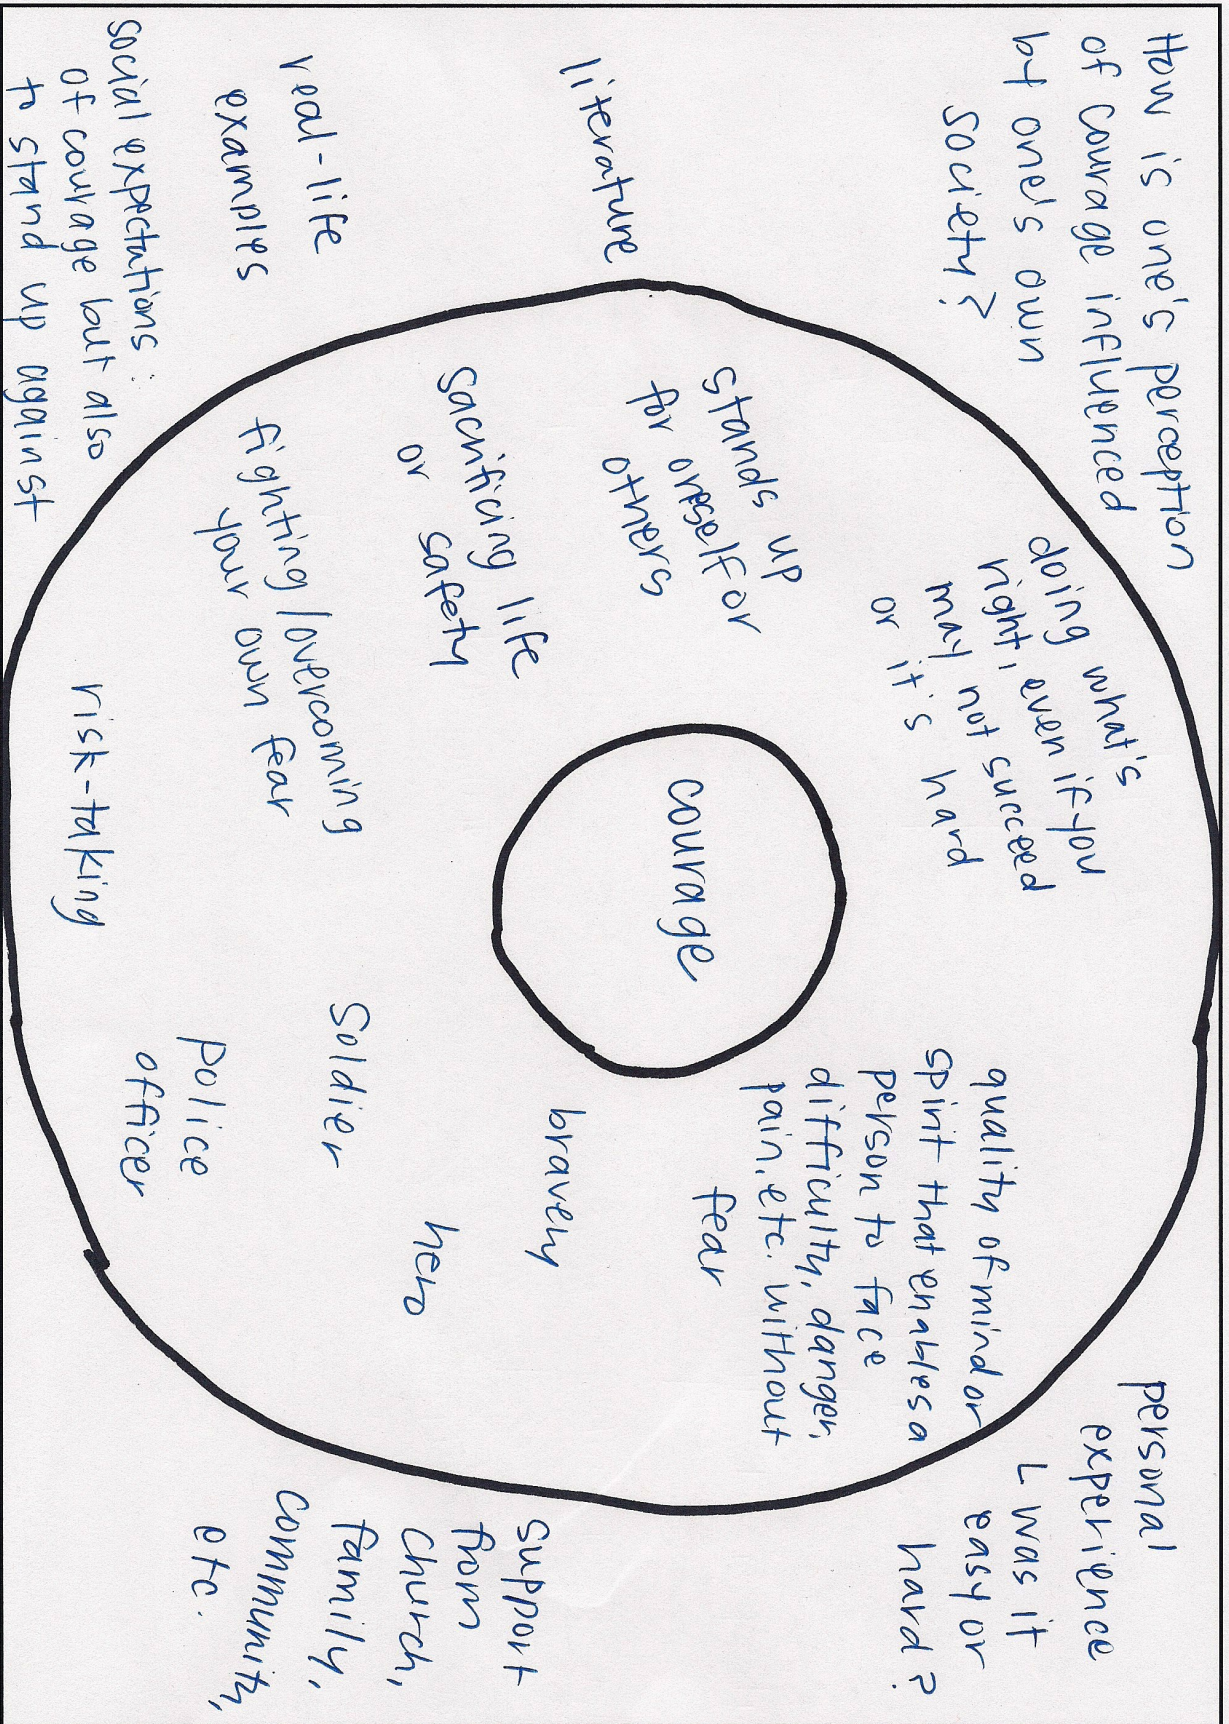 How is one's perception
of courage influenced
by one's own
society?
literature
real-life
examples
social expectations:
of courage but also
to stand up against
doing what's
right, even if you
may not succeed
or it's hard
stands up
for oneself or
others
sacrificing life
or safety
fighting/overcoming
your own fear
risk-taking
courage
quality of mind or
spirit that enables a
person to face
difficulty, danger,
pain, etc. without
fear
bravery
hero
soldier
police
officer
personal
experience
L was it
easy or
hard?
support
from
church,
family,
community,
etc.